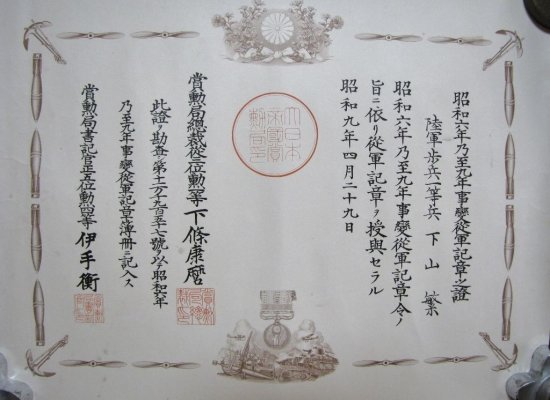 昭和六年乃至九年事變從軍記章之證
陸軍歩兵一等兵 下山 繁
昭和六年乃至九年事變從軍記章令ノ
旨ニ依リ從軍記章ヲ授與セラル
昭和九年四月二十九日
大日本
帝國賞
勲局印
賞勲局總裁從三位勲一等下條康麿
此證ヲ勘査シ第十二万千九百五十七號ヲ以テ昭和六年
乃至九年事變從軍記章簿冊ニ記入ス
賞勲局書記官正五位勲四等伊手衡